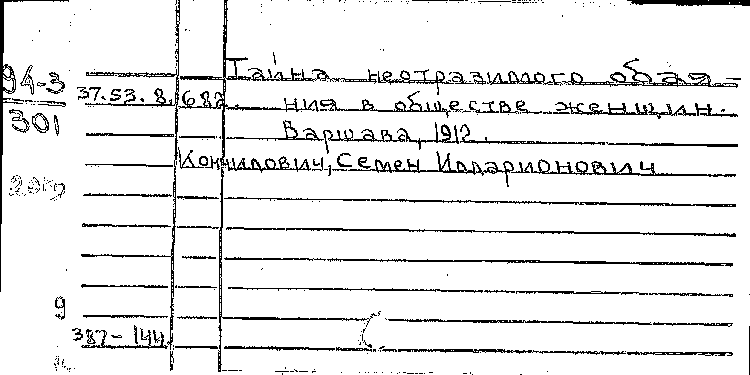 94-3
301
37.53.8.682.
Тайна неотразимого обая-
ния в обществе женщин.
Варшава, 1912.
Семен Илларионович
9
387-144